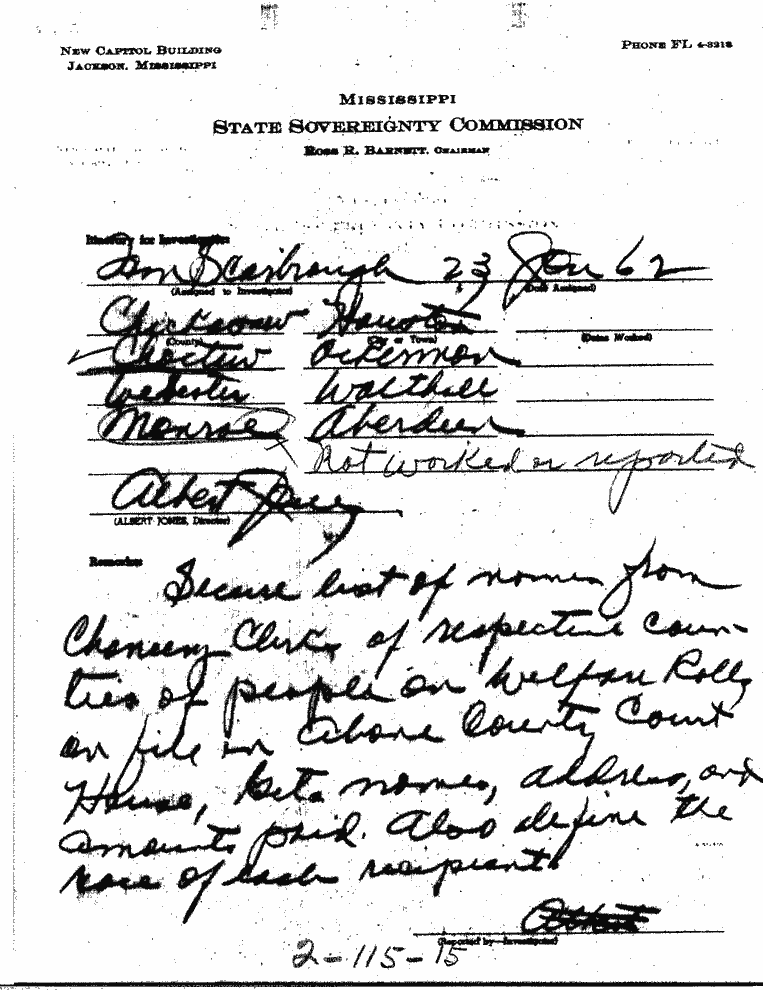 NEW CAPITOL BUILDING
JACKSON, MISSISSIPPI
PHONE FL 4-3218
MISSISSIPPI
STATE SOVEREIGNTY COMMISSION
ROSS R. BARNETT, CHAIRMAN
Itinerary for Investigation
Tom Scarbrough 23 Jan 62
(Assigned to Investigator) (Date Assigned)
Chickasaw Houston
(County) (City or Town) (Dates Worked)
Choctaw Ackerman
Webster Walthall
Monroe Aberdeen
Not worked or reported
Albert Jones
(ALBERT JONES, Director)
Remarks
Secure list of names from
Chancery Clerks of respective coun-
ties of people on Welfare Rolls
on file in above County Court
House, Gets names, address, and
amounts paid. Also define the
race of each recipient.
(Reported by Investigator)
2-115-15